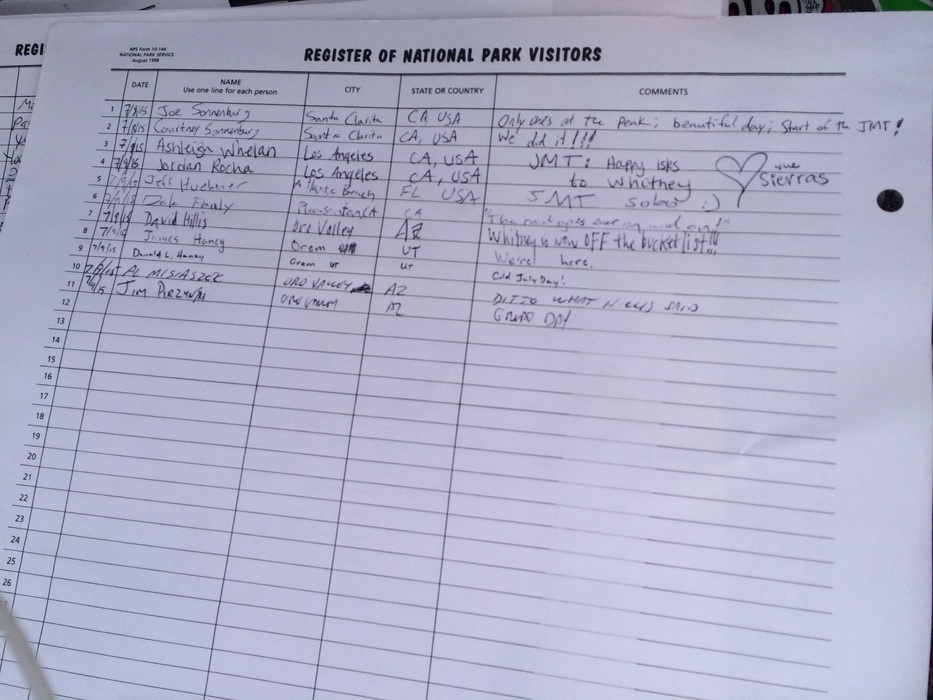 REGI
NPS Form 10-144
NATIONAL PARK SERVICE
August 1998
REGISTER OF NATIONAL PARK VISITORS
DATE NAME CITY STATE OR COUNTRY COMMENTS
Use one line for each person
1 7/8/15 Joe Sonnenburg Santa Clarita CA USA Only ones at the Peak; beautiful day; Start of the JMT!
2 7/8/15 Courtney Sonnenburg Santa Clarita CA, USA We did it!!!
3 7/9/15 Ashleigh Whelan Los Angeles CA, USA JMT: Happy isks ♡ the
4 7/9/15 Jordan Rocha Los Angeles CA, USA to Whitney Sierras
5 7/9/15 Jeff Beach FL USA JMT :)
6 Pleasanton, CA CA
7 7/9/15 David Hillis Oro Valley AZ Whitney is now OFF the bucket list!!!
8 James Haney Orem UT We're here.
9 7/9/15 Donald L. Haney Orem UT UT Cold July Day!
10 MISIASZEK ORO VALLEY AZ DITTO WHAT SAID
11 7/9/15 JIM AZ GREAT DAY
12
13
14
15
16
17
18
19
20
21
22
23
24
25
26